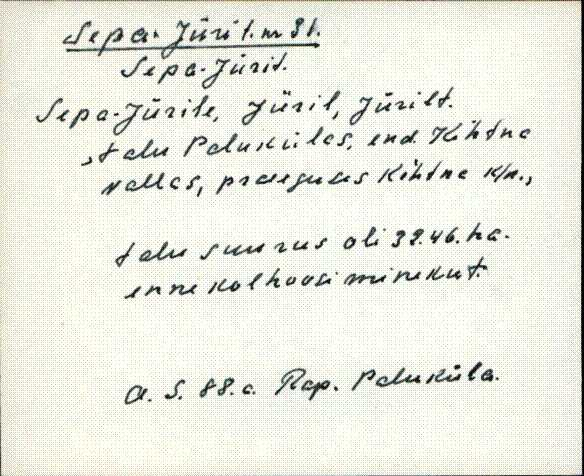 Sepa-Jüri t. nr 31.
Sepa-Jürit.
Sepa-Jürile, Jüril, Jürilt.
talu Palukülas, end. Kehtna
vallas, praeguses Kehtna k/n.,
talu suurus oli 32.46. ha.
enne kolhoosi minekut.
A. S. 88. a. Rap. Paluküla.